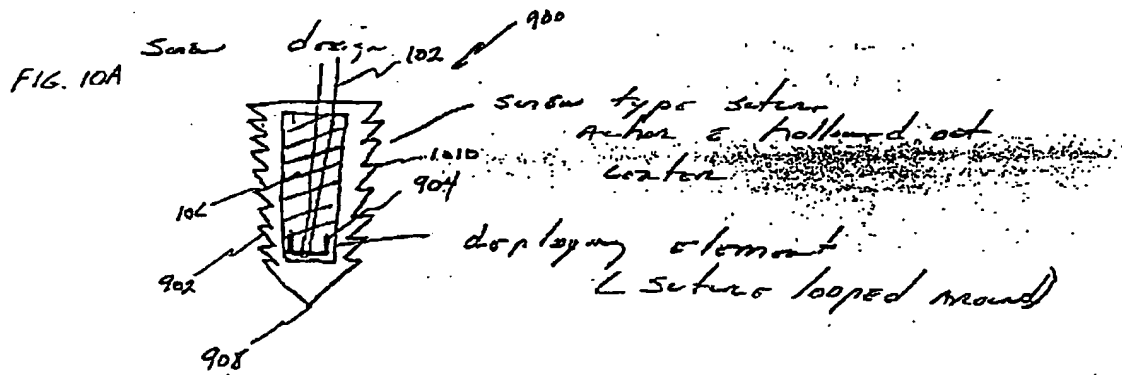 900
Screw design
102
FIG. 10A
screw type suture
Achor c hollowed out
center
1010
904
106
deploying element
( suture looped around)
902
908